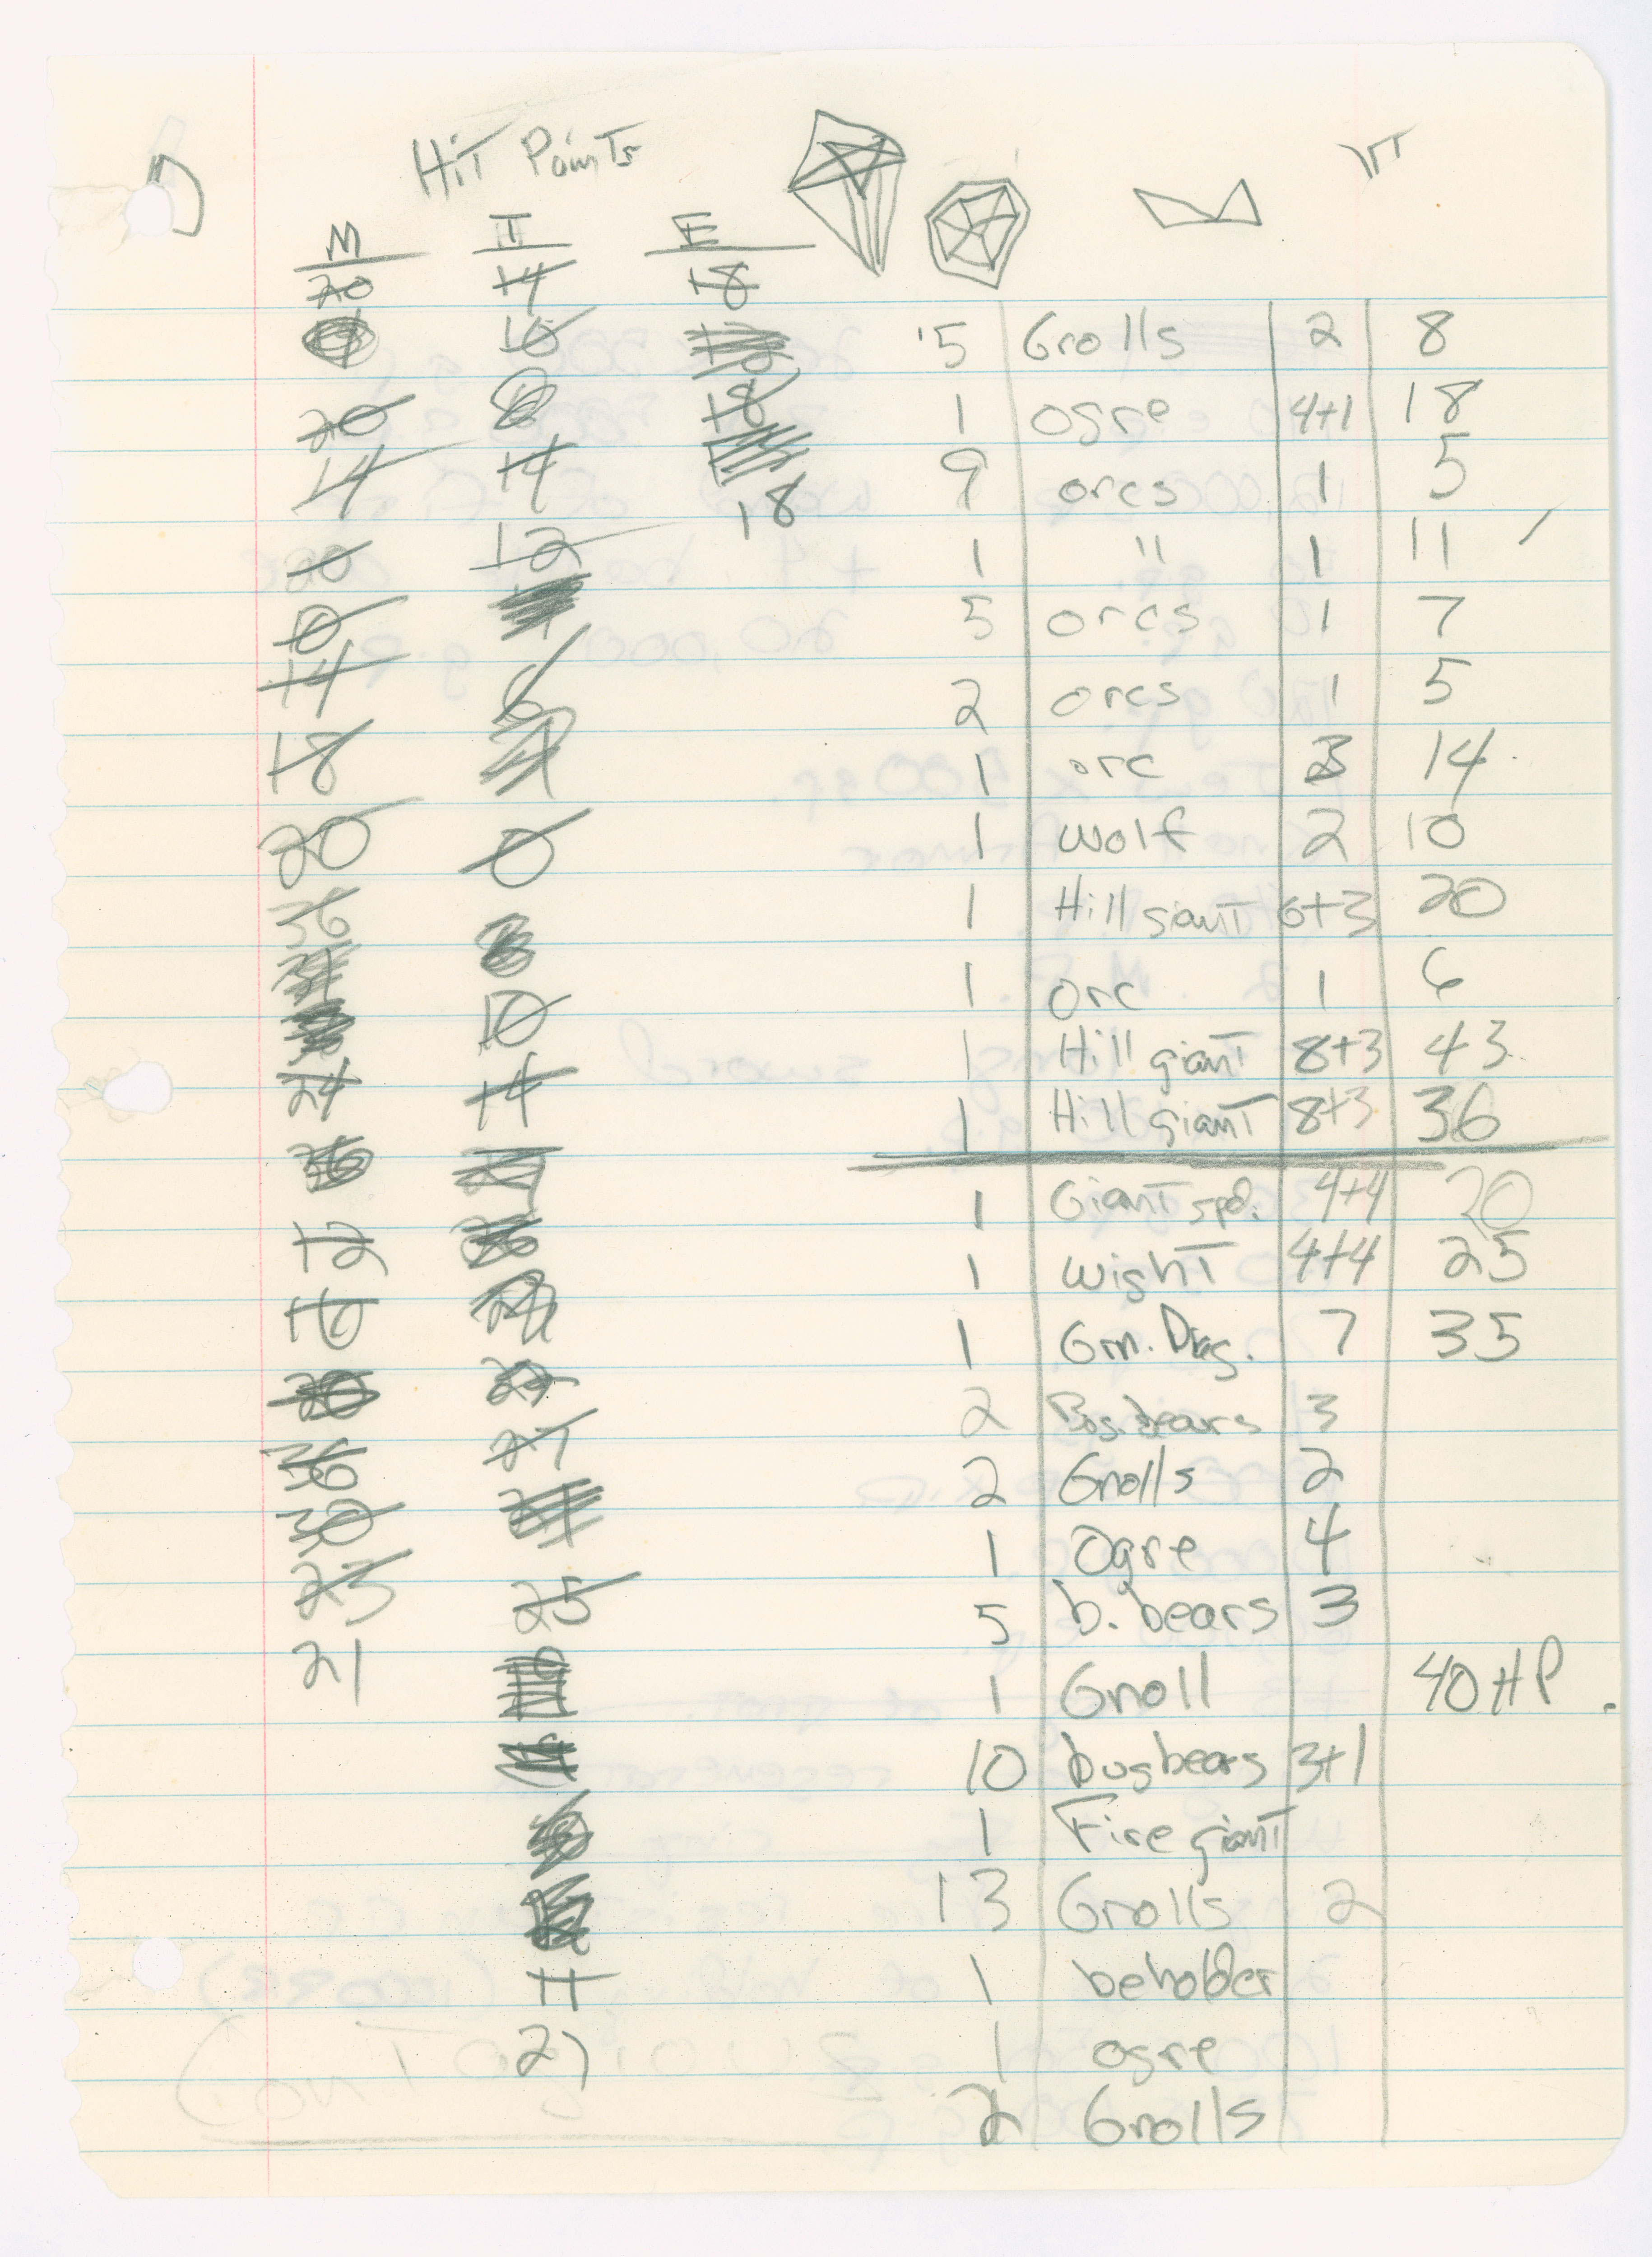 Hit Points
M I E
20 14 18
10
20 8 18
14 14
10 12 18
10
14 6
18
20 0
36 8
10
24 14
36
12
16
30 22
36 27
30
23 25
21
11
21
5 Gnolls 2 8
1 ogre 4+1 18
9 orcs 1 5
1 " 1 11
5 orcs 1 7
2 orcs 1 5
1 orc 3 14
1 wolf 2 10
1 Hill giant 6+3 20
1 orc 1 6
1 Hill giant 8+3 43
1 Hill giant 8+3 36
1 Giant spd. 4+4 20
1 wight 4+4 25
1 Grn. Drag. 7 35
2 Bugbears 3
2 Gnolls 2
1 Ogre 4
5 b. bears 3
1 Gnoll 40 HP.
10 bugbears 3+1
1 Fire giant
13 Gnolls 2
1 beholder
1 ogre
2 Gnolls